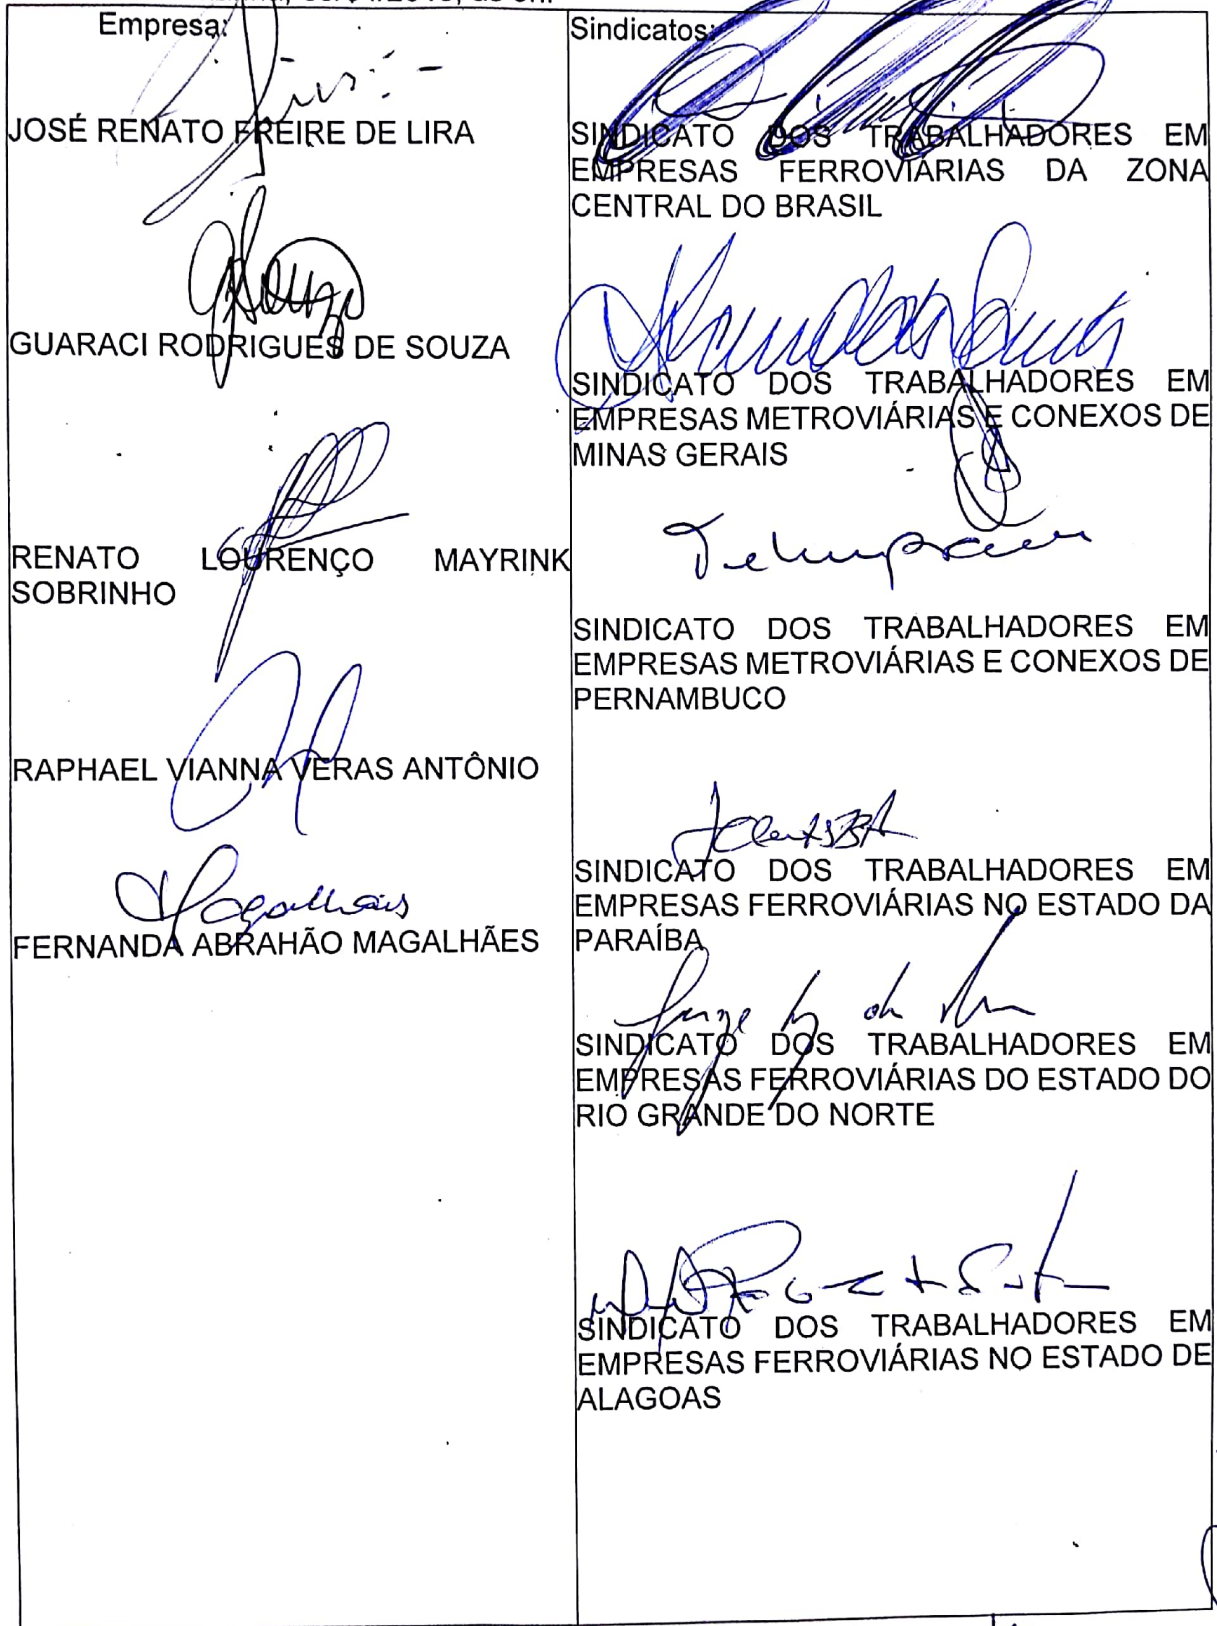 Empresa:
JOSÉ RENATO FREIRE DE LIRA
GUARACI RODRIGUES DE SOUZA
RENATO LOURENÇO MAYRINK
SOBRINHO
RAPHAEL VIANNA VERAS ANTÔNIO
Magalhães
FERNANDA ABRAHÃO MAGALHÃES
Sindicatos:
SINDICATO DOS TRABALHADORES EM
EMPRESAS FERROVIÁRIAS DA ZONA
CENTRAL DO BRASIL
SINDICATO DOS TRABALHADORES EM
EMPRESAS METROVIÁRIAS E CONEXOS DE
MINAS GERAIS
SINDICATO DOS TRABALHADORES EM
EMPRESAS METROVIÁRIAS E CONEXOS DE
PERNAMBUCO
SINDICATO DOS TRABALHADORES EM
EMPRESAS FERROVIÁRIAS NO ESTADO DA
PARAÍBA
SINDICATO DOS TRABALHADORES EM
EMPRESAS FERROVIÁRIAS DO ESTADO DO
RIO GRANDE DO NORTE
SINDICATO DOS TRABALHADORES EM
EMPRESAS FERROVIÁRIAS NO ESTADO DE
ALAGOAS